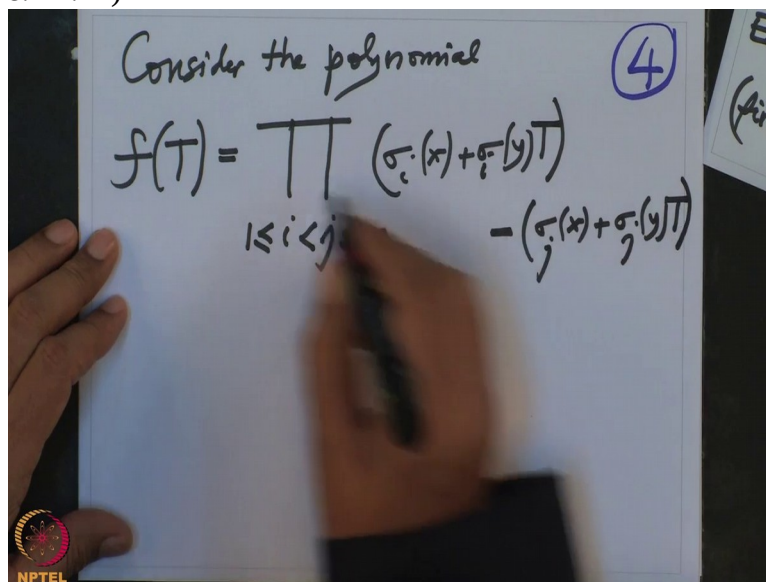 Consider the polynomial
4
f(T) = ∏ (σᵢ(x) + σᵢ(y)T)
1 ≤ i < j
- (σⱼ(x) + σⱼ(y)T)
E
(fin
NPTEL